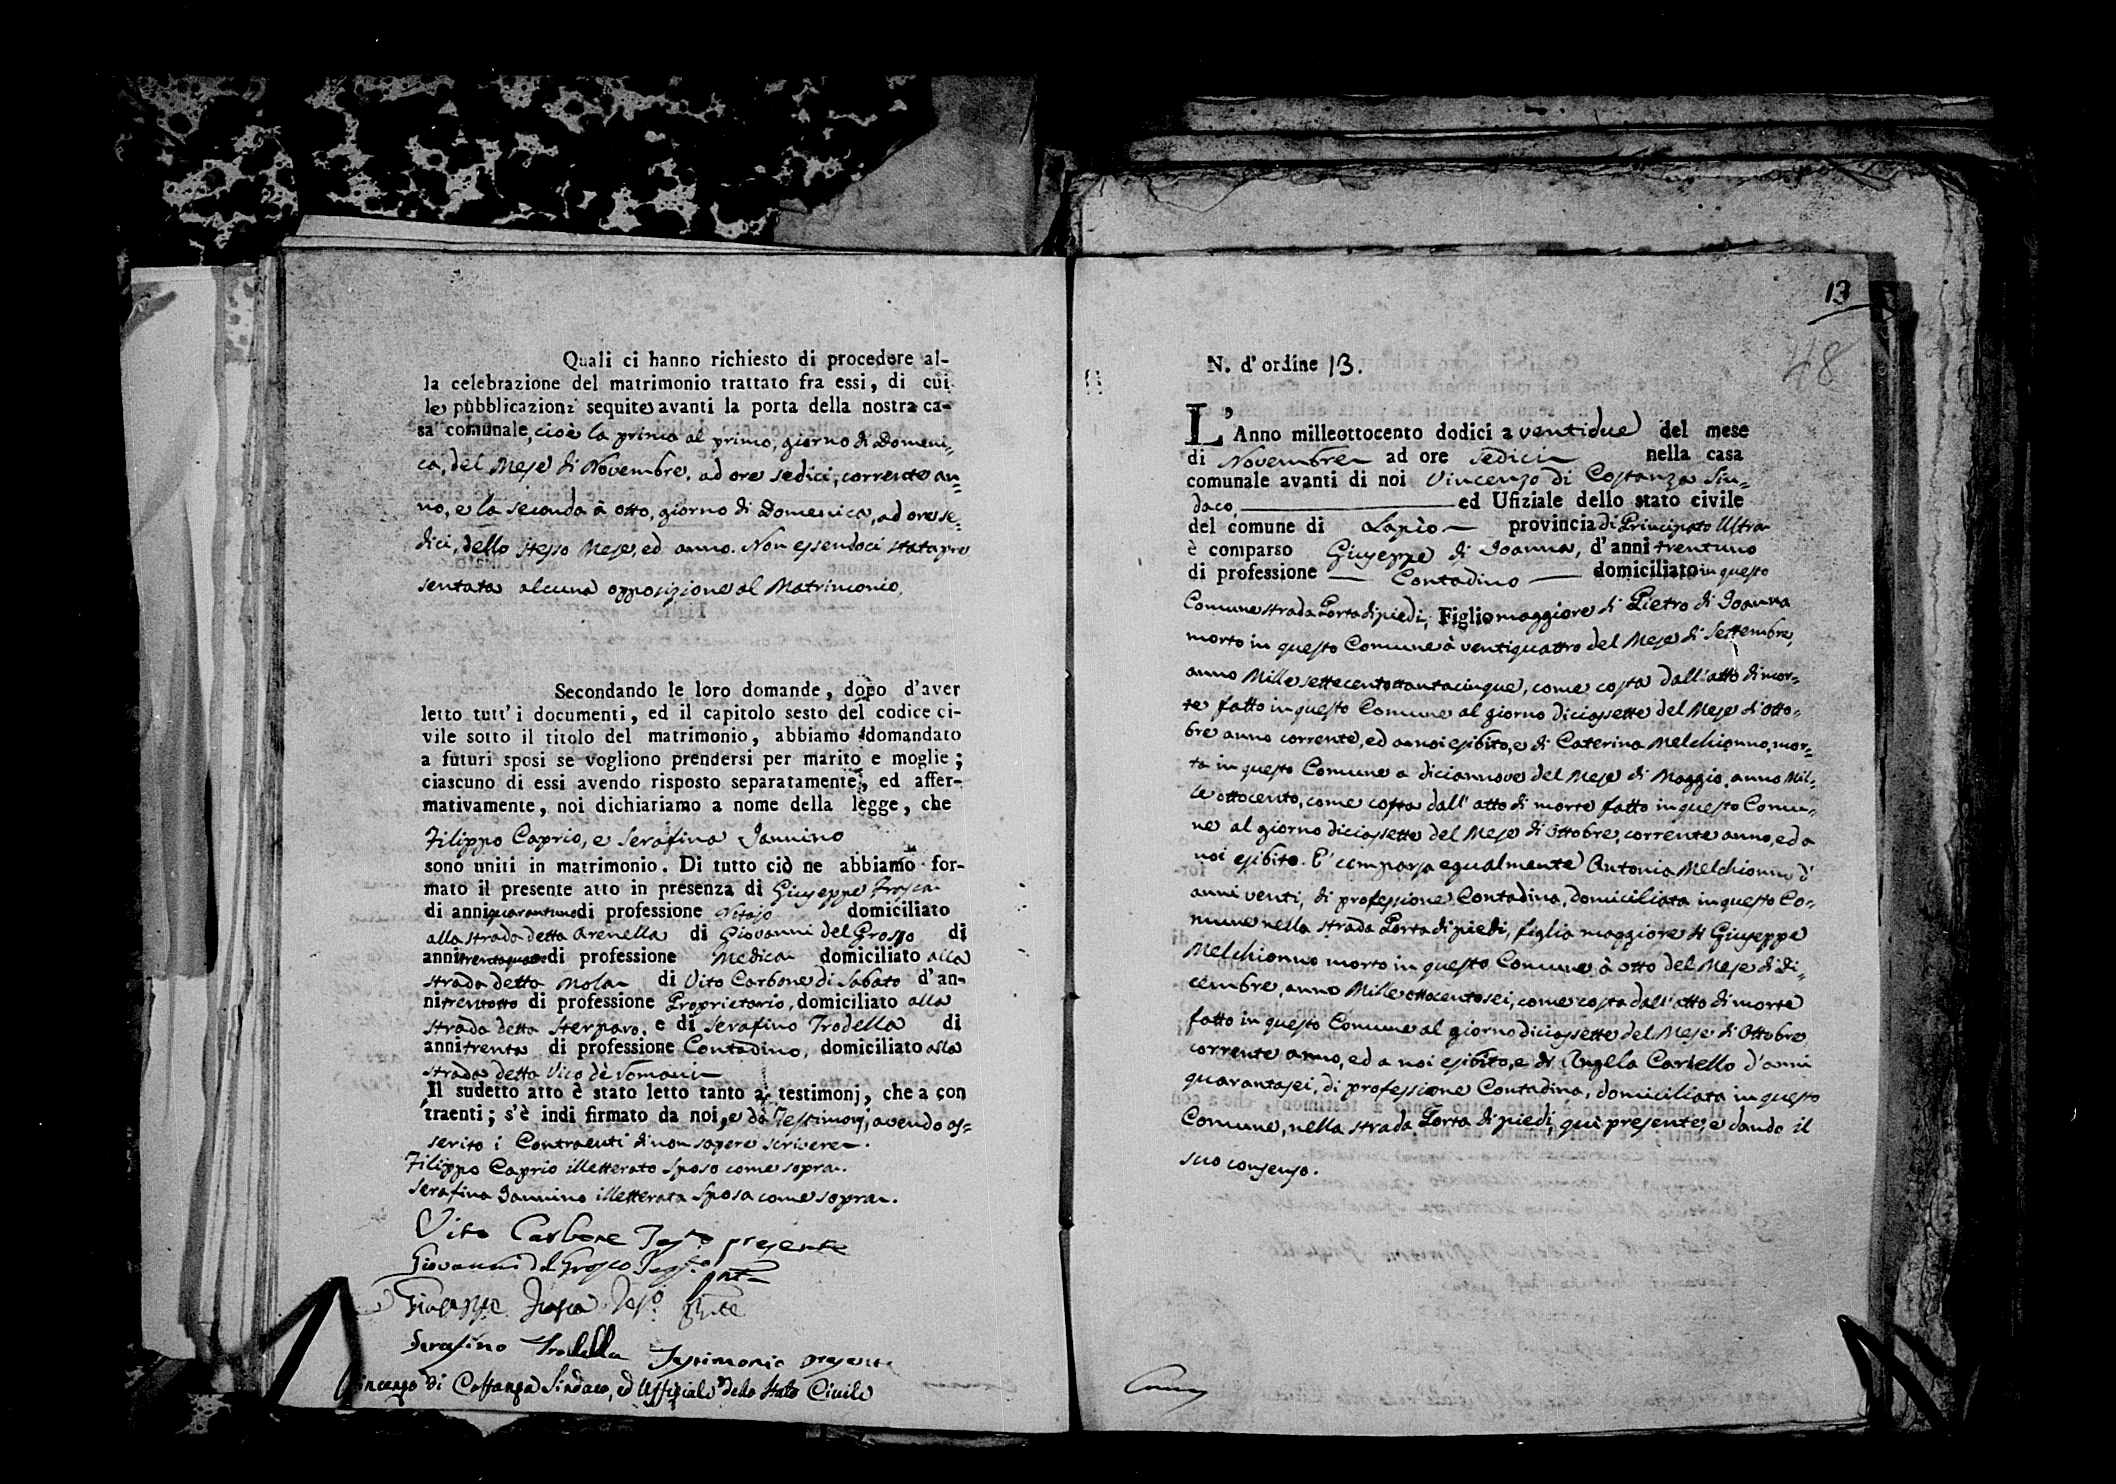 Quali ci hanno richiesto di procedere al-
la celebrazione del matrimonio trattato fra essi, di cui
le pubblicazioni sequite avanti la porta della nostra ca-
sa comunale, cioè la prima al primo, giorno di Domeni-
ca, del Mese di Novembre, ad ore sedici, corrente an-
no, e la seconda à otto, giorno di Domenica, ad ore se-
dici, dello stesso Mese, ed anno. Non essendoci stata pre
sentata alcuna opposizione al Matrimonio.
Secondando le loro domande, dopo d'aver
letto tutt'i documenti, ed il capitolo sesto del codice ci-
vile sotto il titolo del matrimonio, abbiamo domandato
a futuri sposi se vogliono prendersi per marito e moglie;
ciascuno di essi avendo risposto separatamente, ed affer-
mativamente, noi dichiariamo a nome della legge, che
Filippo Caprio, e Serafina Jannino
sono uniti in matrimonio. Di tutto ciò ne abbiamo for-
mato il presente atto in presenza di Giuseppe Frosca
di anni quarantuno di professione domiciliato
alla strada detta Arenella di Giovanni del Grosso di
anni di professione Medica domiciliato alla
strada detta Nola di Vito Carbone di Sabato d'an-
ni trentotto di professione Proprietario, domiciliato alla
strada detta Sterparo, e di Serafino Trodella di
anni trenta di professione Contadino, domiciliato alla
strada detta Vico de
Il sudetto atto è stato letto tanto a' testimonj, che a con
traenti; s'è indi firmato da noi, e da Testimonj, avendo as-
serito i Contraenti di non sapere scrivere.
Filippo Caprio illetterato sposo come sopra.
Serafina Jannino illetterata sposa come sopra.
Vito Carbone Testo presente
Giovanni del Grosso Testo pnte
Giuseppe Frosca Testo
Serafino Trodella Testimonio presente
Vincenzo di Costanza Sindaco, ed Uffiziale dello Stato Civile
13
48
N. d'ordine 13.
L'Anno milleottocento dodici a ventidue del mese
di Novembre ad ore sedici nella casa
comunale avanti di noi Vincenzo di Costanza Sin-
daco, ed Ufiziale dello stato civile
del comune di Lapio provincia di Principato Ultra
è comparso Giuseppe di Joanna, d'anni trentuno
di professione Contadino domiciliato in questo
Comune strada Porta di piedi, Figlio maggiore di Pietro di Joanna
morto in questo Comune à ventiquattro del Mese di Settembre,
anno Mille settecentottantacinque, come costa dall'atto di mor-
te fatto in questo Comune al giorno diciassette del Mese d'Otto-
bre anno corrente, ed a noi esibito, e di Caterina Melchionno, mor-
ta in questo Comune a diciannove del Mese di Maggio, anno Mil-
le ottocento, come costa dall'atto di morte fatto in questo Comu-
ne al giorno diciassette del Mese di Ottobre, corrente anno, ed a
noi esibito. E' comparsa egualmente Antonia Melchionno d'
anni venti, di professione Contadina, domiciliata in questo Co-
mune nella strada Porta di piedi, figlia maggiore di Giuseppe
Melchionno morto in questo Comune à otto del Mese di Di-
cembre, anno Mille ottocentosei, come costa dall'atto di morte
fatto in questo Comune al giorno diciassette del Mese di Ottobre
corrente anno, ed a noi esibito, e di Angela Carbello d'anni
quarantasei, di professione Contadina, domiciliata in questo
Comune, nella strada Porta di piedi, qui presente, e dando il
suo consenso.